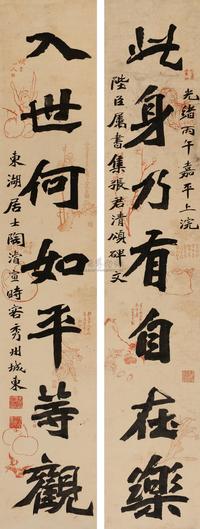 此身乃有自在樂
光緒丙午嘉平上浣
陛臣屬書集張若清頌碑文
入世何如平等觀
東湖居士陶濬宣時客秀州城東